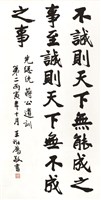 不誠則天下無能成之
事至誠則天下無不成
之事
先總統 蔣公遺訓
丙寅年十月王 敬書